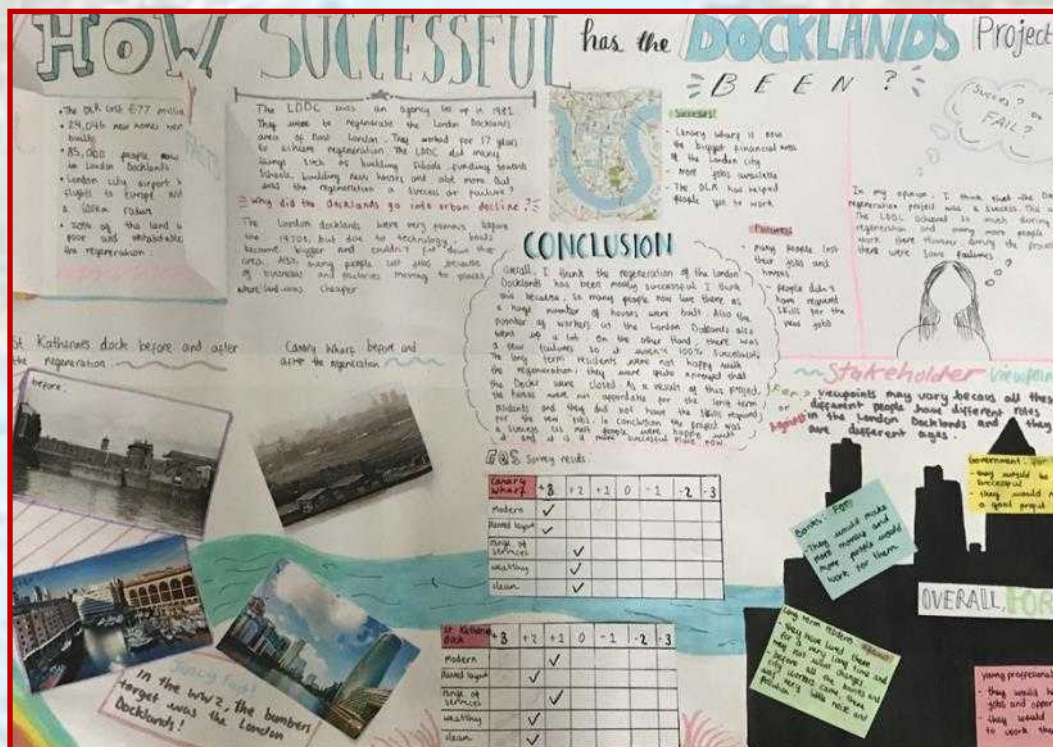 HOW SUCCESSFUL has the DOCKLANDS Project
BEEN?
• The DLR cost £77 millio
• 24,046 new homes wer
built
• 85,000 people now
in London Docklands
• London city airport
flights to Europe
a
radius
• 20% of the land
poor and uninhabitable
the regeneration.
FACTS
The LDDC was an agency set up in 1981.
They were to regenerate the London Docklands
area of East London. They worked for 17 years
to achieve regeneration. The LDDC did many
things such as building funding towards
schools, building new houses and alot more. But
was the regeneration a success or failure?
Why did the docklands go into urban decline?
The London docklands were very famous before
the 1970s, but due to technology, boats
became bigger and couldn't fit down the
area. Also, many people lost jobs because
of businesses and factories moving to places
where land was cheaper
Successes
- Canary wharf is now
the biggest financial area
of the London city
- more jobs available
- The DLR has helped
people get to work
Failures
- many people lost
their jobs and
houses.
- people didn't
have required
skills for the
new jobs
Success? or
FAIL?
In my opinion, I think that the Do
regeneration project was a success. This
The LDDC achieved so much during
regeneration and many more people
work there. However during the proces
there were some failures
CONCLUSION
Overall, I think the regeneration of the London
Docklands has been mostly successful. I think
this because, so many people now live there as
a huge number of houses were built. Also the
number of workers in the London Docklands also
went up a lot. On the other hand, there was
a few failures so it wasn't 100% successful.
The long term residents were not happy with
the regeneration; they were quite annoyed that
the Docks were closed. As a result of this project,
the houses were not affordable for the long term
residents and they did not have the skills required
for the new jobs. In conclusion the project was
a success as most people were happy with
it and it is a more successful place now.
St Katharines dock before and after
the regeneration
Canary Wharf before and
after the regeneration
before:
after
Juicy Fact!
In the WW2, the bombers
target was the London
Docklands!
EQS survey results.
Canary wharf +3 +2 +1 0 -1 -2 -3
modern ✓
Planned layout ✓
range of services ✓
wealthy ✓
clean ✓
St Katharine dock +3 +2 +1 0 -1 -2 -3
modern ✓
Planned layout ✓
range of services ✓
wealthy ✓
clean ✓
Stakeholder viewpoin
For or Against
viewpoints may vary becaus all these
different people have different roles
in the London Docklands and they
are different ages.
Banks: FOR
- They would make
more money and
more people would
work for them
Government: For
- they would be
successful
- they would
a good project
OVERALL, FOR
Long term residents: against
- they have lived there
for a very long time and
may not want change
- before all the banks and
city workers came there
was very little noise and
pollution
young proffesional
- they would h
jobs and oppor
- they would
to work the